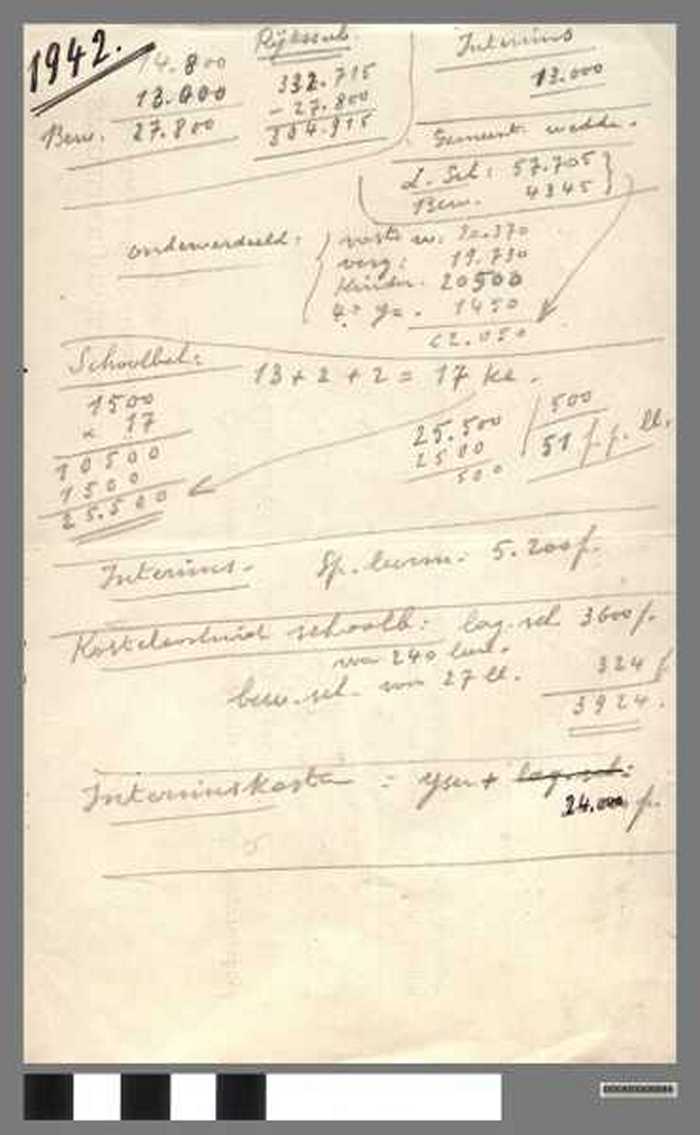 1942.
14.800
13.000
Bew. 27.800
Rijkssub.
332.715
- 27.800
304.915
Interims
13.000
Gemeent. wedde.
L. Sch: 57.705
Bew. 4345
onderverdeeld:
vaste w:
verg: 19.730
Kinder. 20500
1450
62.050
Schoolbeh:
13 + 2 + 2 = 17 kl.
1500
× 17
10500
1500
25.500
25.500 500
2500 51 f. p. ll.
500
Interims. Sp. leerm: 5.200 f.
Kosteloosheid schoolb: lag. sch 3600 f.
voor 240 leerl.
bew. sch. voor 27 ll. 324 f
3924.
Interimskosten : Yser + lag. sch:
24.000 f.